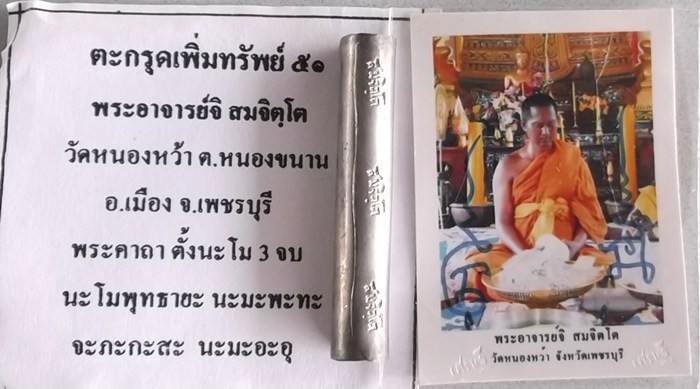 ตะกรุดเพิ่มทรัพย์ ๕๑
พระอาจารย์จิ สมจิตฺโต
วัดหนองหว้า ต.หนองขนาน
อ.เมือง จ.เพชรบุรี
พระคาถา ตั้งนะโม 3 จบ
นะโมพุทธายะ นะมะพะทะ
จะภะกะสะ นะมะอะอุ
พระอาจารย์จิ สมจิตฺโต
วัดหนองหว้า จังหวัดเพชรบุรี